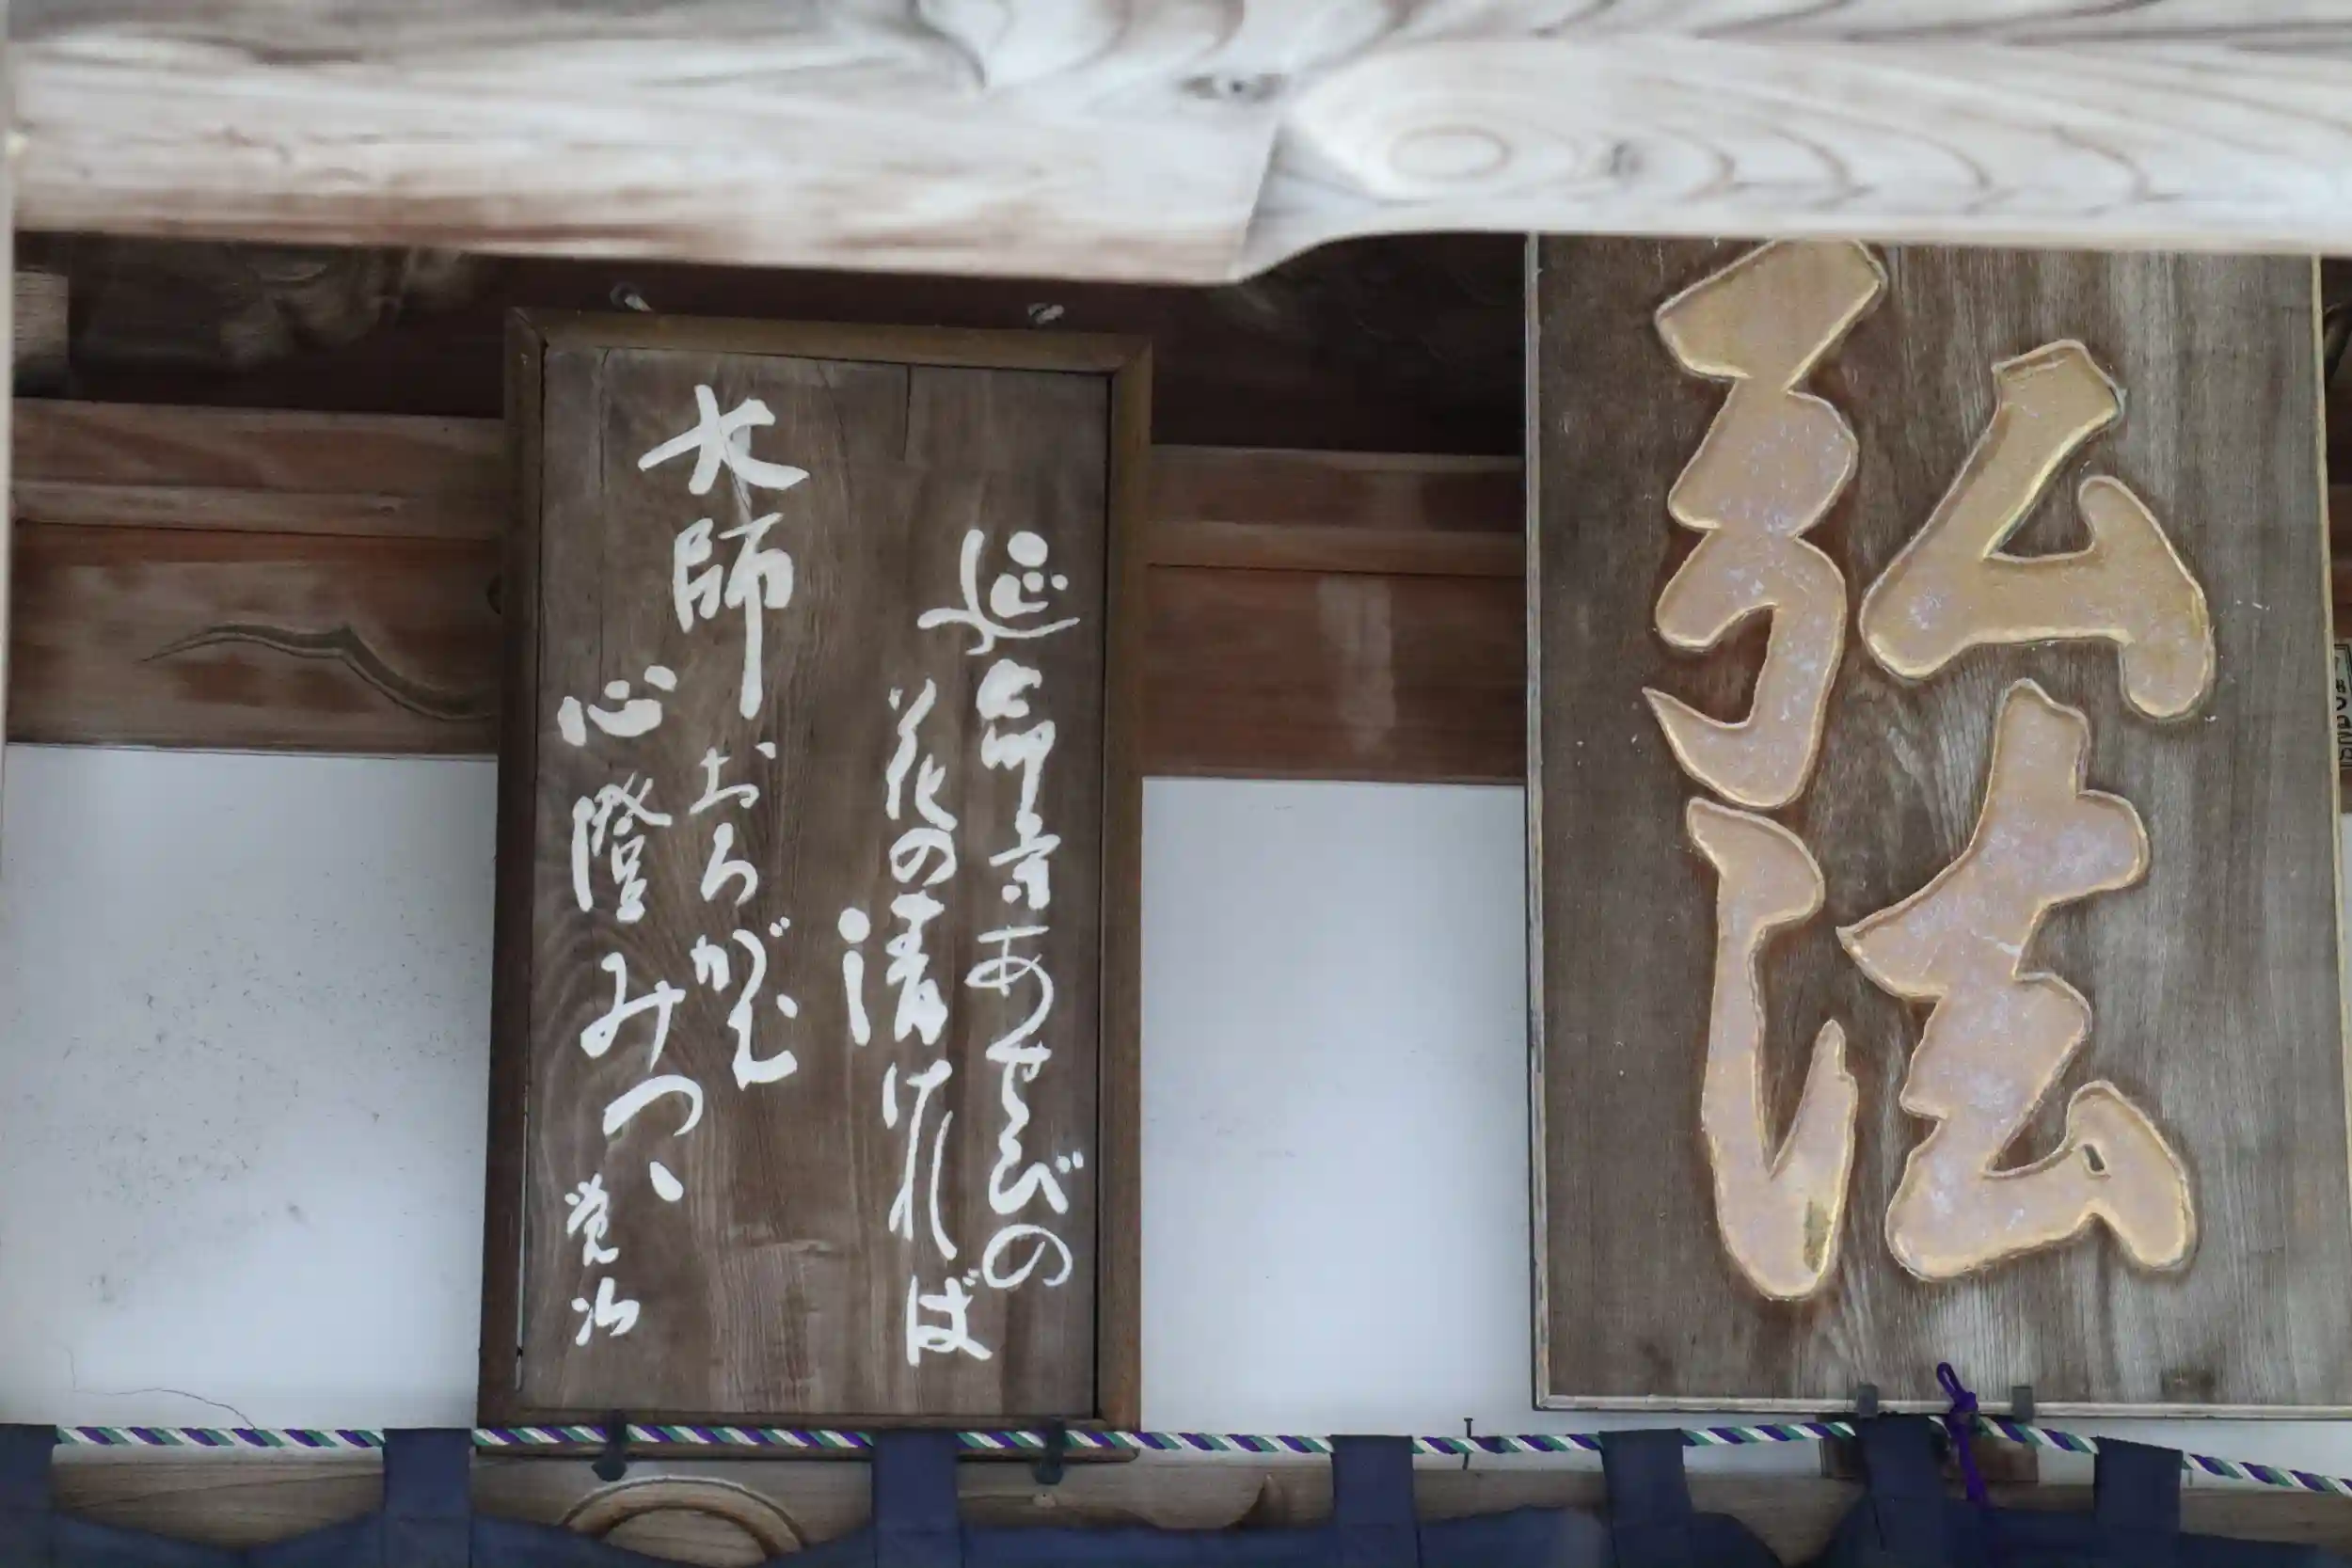 弘法
延命寺あせびの
花の清ければ
大師おろがむ
心澄みつゝ